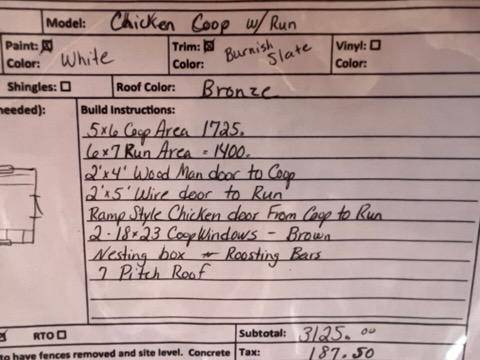 Model: Chicken Coop w/ Run
Paint: ☒ Trim: ☒ Vinyl: ☐
Color: White Color: Burnish Slate Color:
Shingles: ☐ Roof Color: Bronze
needed): Build Instructions:
5x6 Coop Area 1725.
6x7 Run Area = 1400.
2'x4' Wood Man door to Coop
2'x5' Wire door to Run
Ramp Style Chicken door From Coop to Run
2 - 18x23 Coop Windows - Brown
Nesting box ~ Roosting Bars
7 Pitch Roof
RTO ☐ Subtotal: 3125.00
to have fences removed and site level. Concrete Tax: 187.50